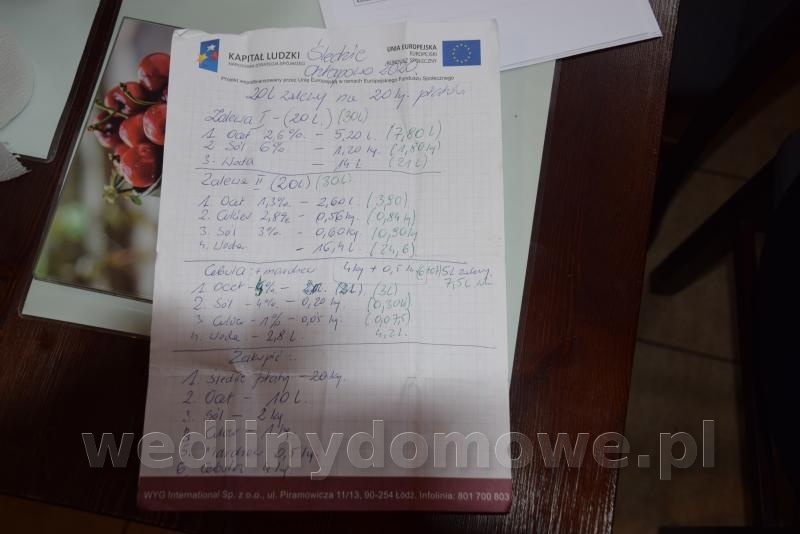 KAPITAŁ LUDZKI
NARODOWA STRATEGIA SPÓJNOŚCI
Śledzie
UNIA EUROPEJSKA
EUROPEJSKI
FUNDUSZ SPOŁECZNY
2020.
Projekt współfinansowany przez Unię Europejską w ramach Europejskiego Funduszu Społecznego
20L zalewy na 20 kg. płatów
Zalewa I - (20L) (30L)
1. Ocet 2,6% - 5,20 L. (7,80 L)
2. Sól 6% - 1,20 kg. (1,80 kg)
3. Woda - 14 L (21 L)
Zalewa II (20L) (30L)
1. Ocet 1,3% - 2,60 L. (3,90)
2. Cukier 2,8% - 0,56 kg. (0,84 kg)
3. Sól 3% - 0,60 kg. (0,90 kg)
4. Woda - 16,4 L. (24,6)
Cebula + marchew 4 kg + 0,5 kg 5L zalewy
7,5L
1. Ocet - 4% - 2L (3L)
2. Sól - 4% - 0,20 kg. (0,30 kg)
3. Cukier - 1% - 0,05 kg. (0,075)
4. Woda - 2,8 L. 4,2 L.
Zakupić:
1. Śledzie płaty - 20 kg.
2. Ocet - 10 L.
3. Sól - 2 kg
4. Cukier - 1 kg
5. Marchew 0,5 kg.
6. Cebula 4 kg
wedlinydomowe.pl
WYG International Sp. z o.o., ul. Piramowicza 11/13, 90-254 Łódź. Infolinia: 801 700 803